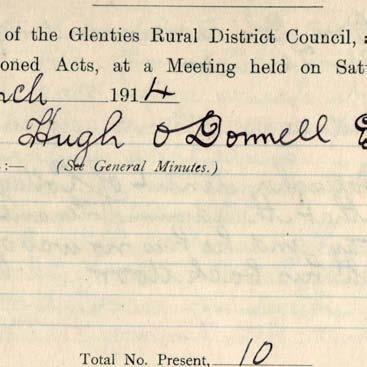 of the Glenties Rural District Council,
oned Acts, at a Meeting held on Sat
rch 1914
Hugh O'Donnell E
:— (See General Minutes.)
Total No. Present, 10